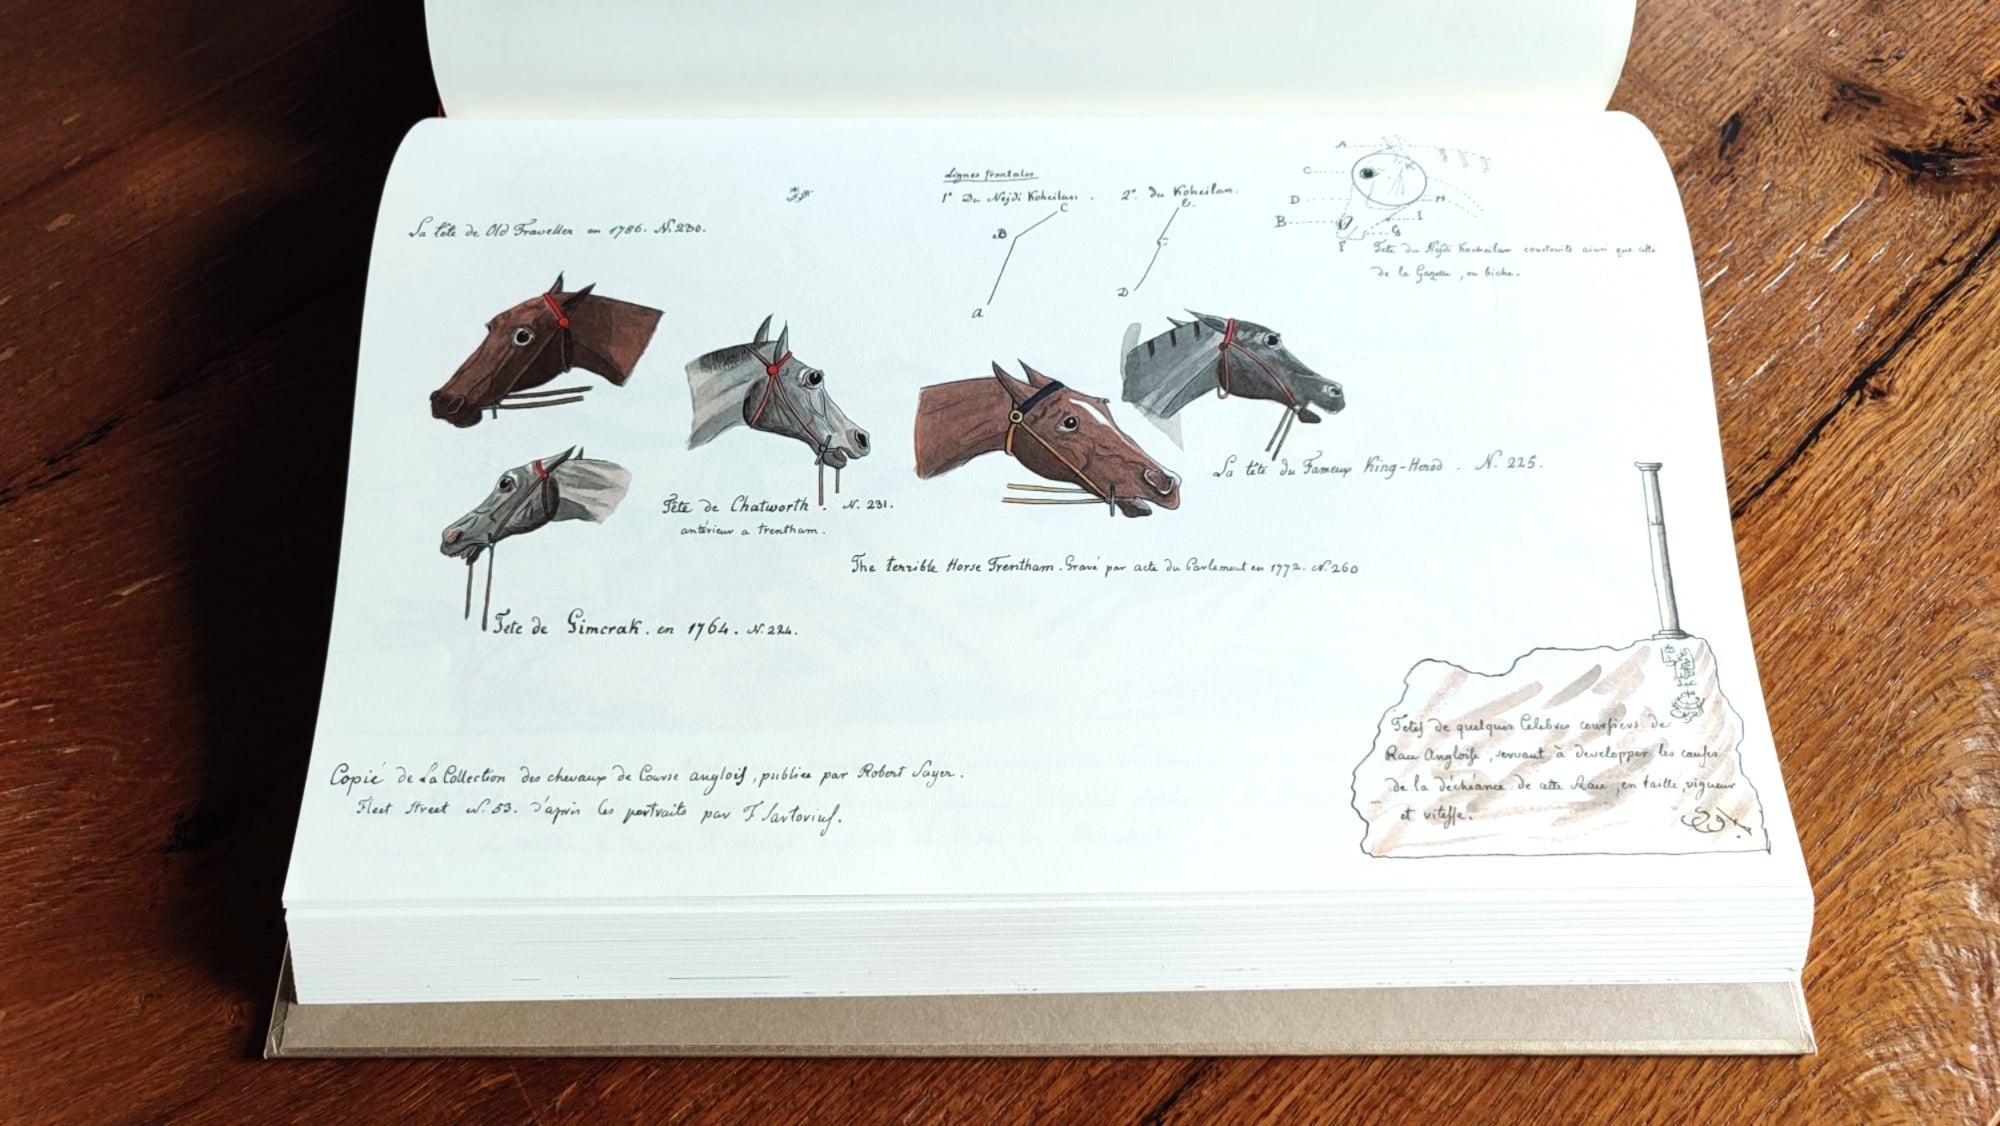 Lignes frontales
1° Du Nejdi Koheilan. 2° du Koheilan.
A
C
D
B
H
I
G
F
C
B
A
C
D
Tete du Nejdi Kocheilan construite ainsi que celle
de la Gazelle, ou biche.
La tête de Old Traveller en 1786. N. 230.
La tête du Fameux King-Herod. N. 225.
Tête de Chatworth. N. 231.
antérieur a Trentham.
The terrible Horse Trentham. Gravé par acte du Parlement en 1772. N. 260
Tete de Gimcrak. en 1764. N. 224.
Copié de La Collection des chevaux de Course anglois, publiee par Robert Sayer.
Fleet Street N. 53. d'après les portraits par F Sartorius.
Tetes de quelques Celebres coursiers de
Race Angloise, servant à developper les causes
de la déchéance de cette Race, en taille, vigueur
et vitesse.